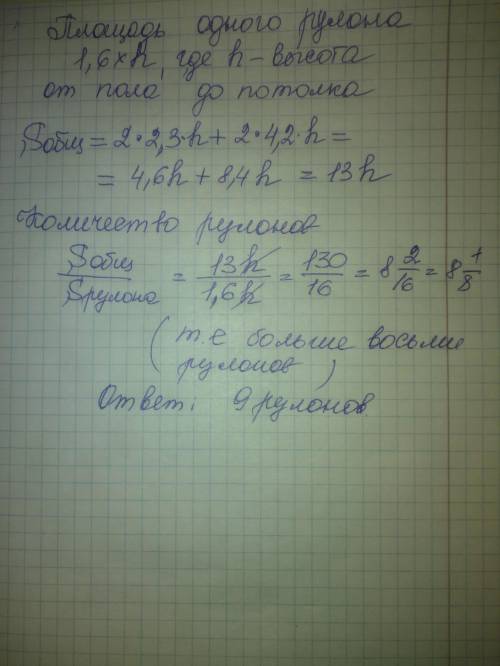 Площадь одного рулона
1,6×h, где h – высота
от пола до потолка
Sобщ = 2·2,3·h + 2·4,2·h =
= 4,6h + 8,4h = 13h
Количество рулонов
Sобщ/Sрулона = 13h/1,6h = 130/16 = 8 2/16 = 8 1/8
(т.е больше восьми
рулонов)
Ответ: 9 рулонов.